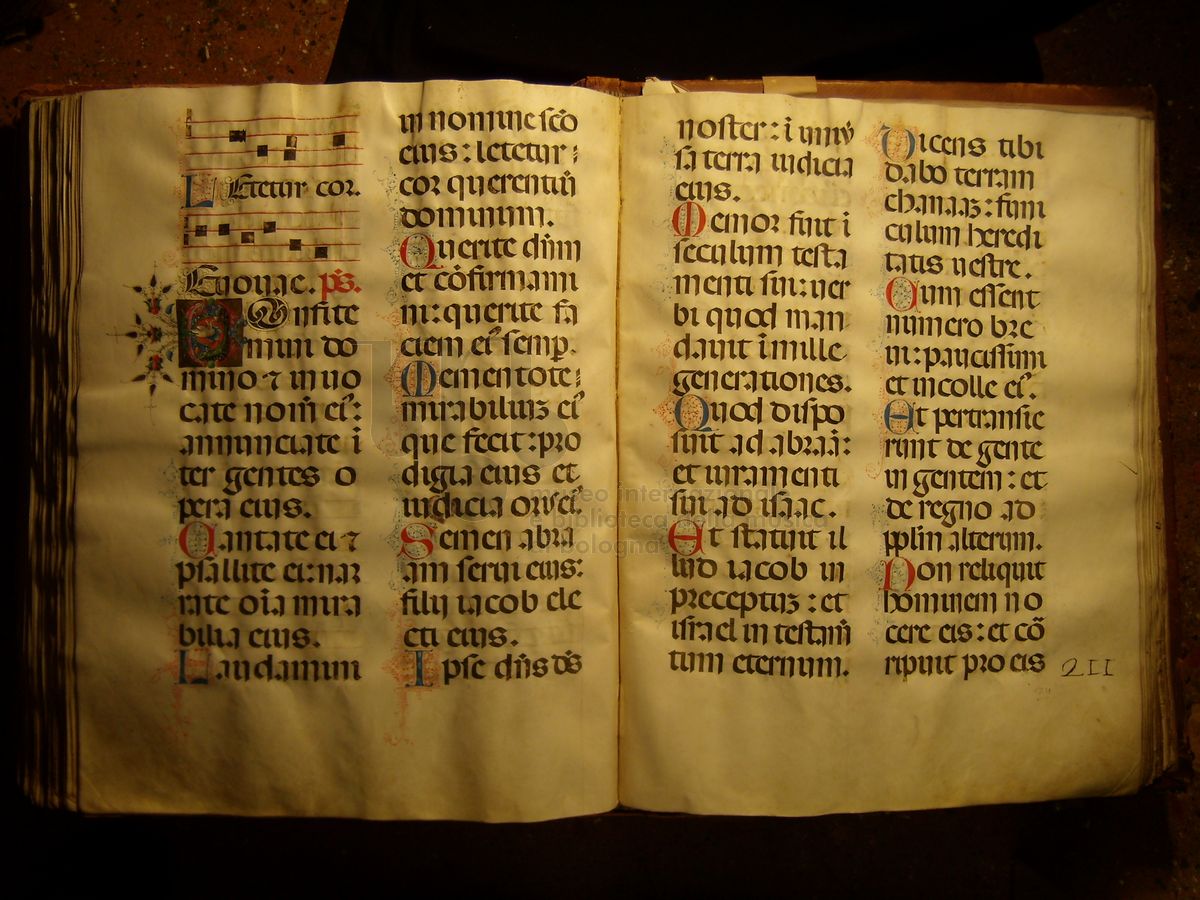 Letetur cor.
Euouae. ps.
Confite
mini do
mino ⁊ inuo
cate nom̄ eiꝰ:
annunciate ī
ter gentes o
pera eius.
Cantate ei ⁊
psallite ei: nar
rate oīa mira
bilia eius.
Laudamini
in nomine sc̄o
eius: letetur
cor querentiū
dominum.
Querite dn̄m
et cōfirmami
ni: querite fa
ciem eiꝰ semp̄.
Mementote
mirabiliuꝫ eiꝰ
que fecit: pro
digia eius et
iudicia oris eiꝰ.
Semen abra
am serui eius:
filij iacob ele
cti eius.
Ipse dn̄s ds̄
noster: ī uniu̾
sa terra iudicia
eius.
Memor fuit ī
seculum testa
menti sui: uer
bi quod man
dauit ī mille
generationes.
Quod dispo
suit ad abraā:
et iuramenti
sui ad isaac.
Et statuit il
lud iacob in
preceptuꝫ: et
israel in testam̄
tum eternum.
Dicens tibi
dabo terram
chanaaꝫ: funi
culum heredi
tatis uestre.
Cum essent
numero bre
ui: paucissimi
et incole eiꝰ.
Et pertransie
runt de gente
in gentem: et
de regno ad
pplm̄ alterum.
Non reliquit
hominem no
cere eis: et cō
ripuit pro eis
211
museo internazionale
e biblioteca della musica
di bologna